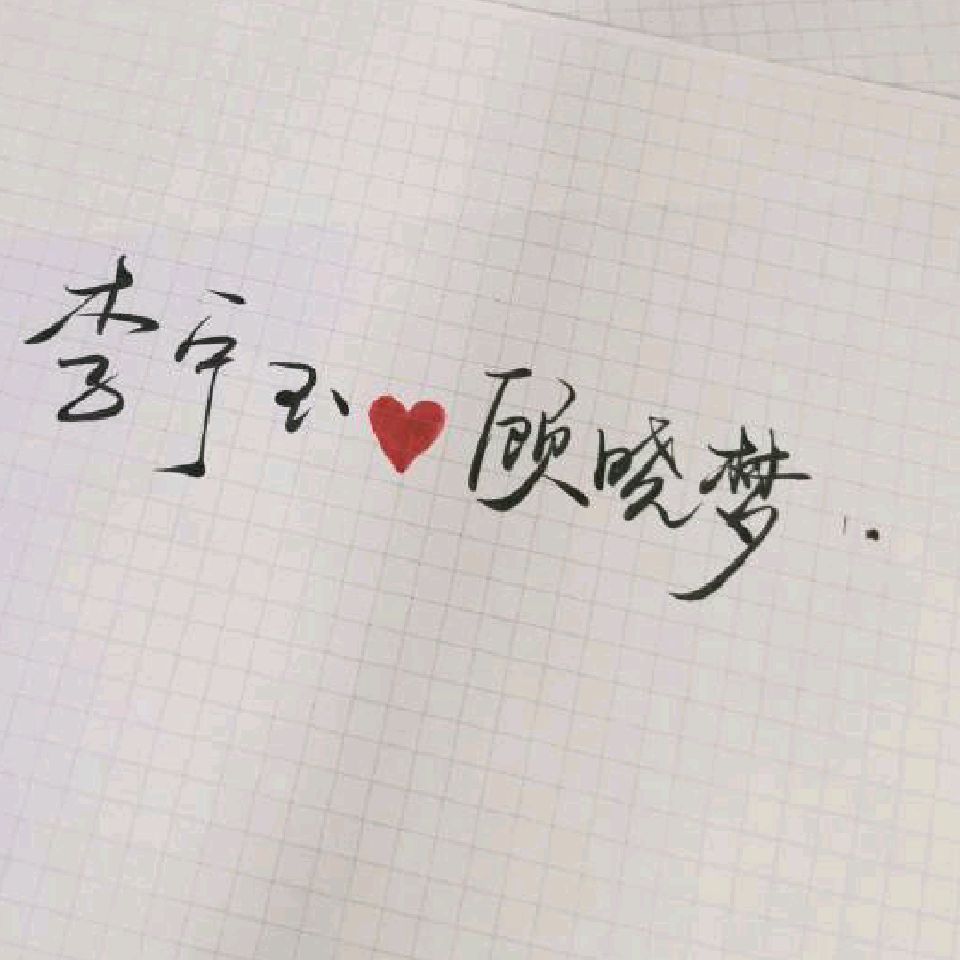 李宁玉❤顾晓梦..